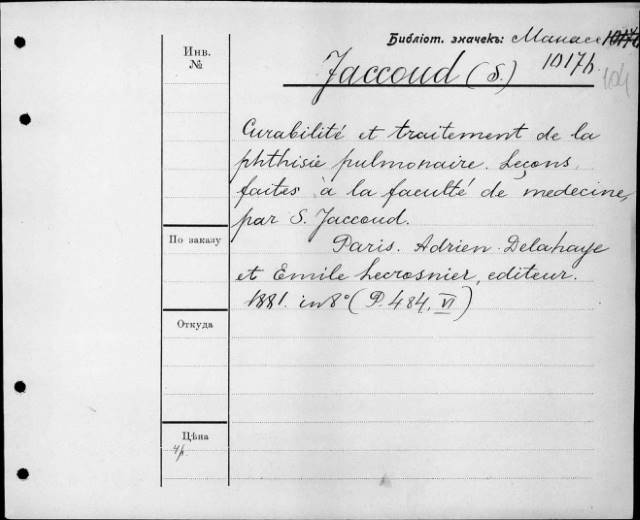 Библіот. значекъ: Манас
Инв.
№
Jaccoud (S.)
1017b
104
Curabilité et traitement de la
phthisie pulmonaire. Leçons
faites à la faculté de medecine,
par S. Jaccoud.
По заказу
Paris. Adrien Delahaye
et Emile Lecrosnier, editeur.
1881. in 8° (P. 484, VI)
Откуда
Цѣна
4р.